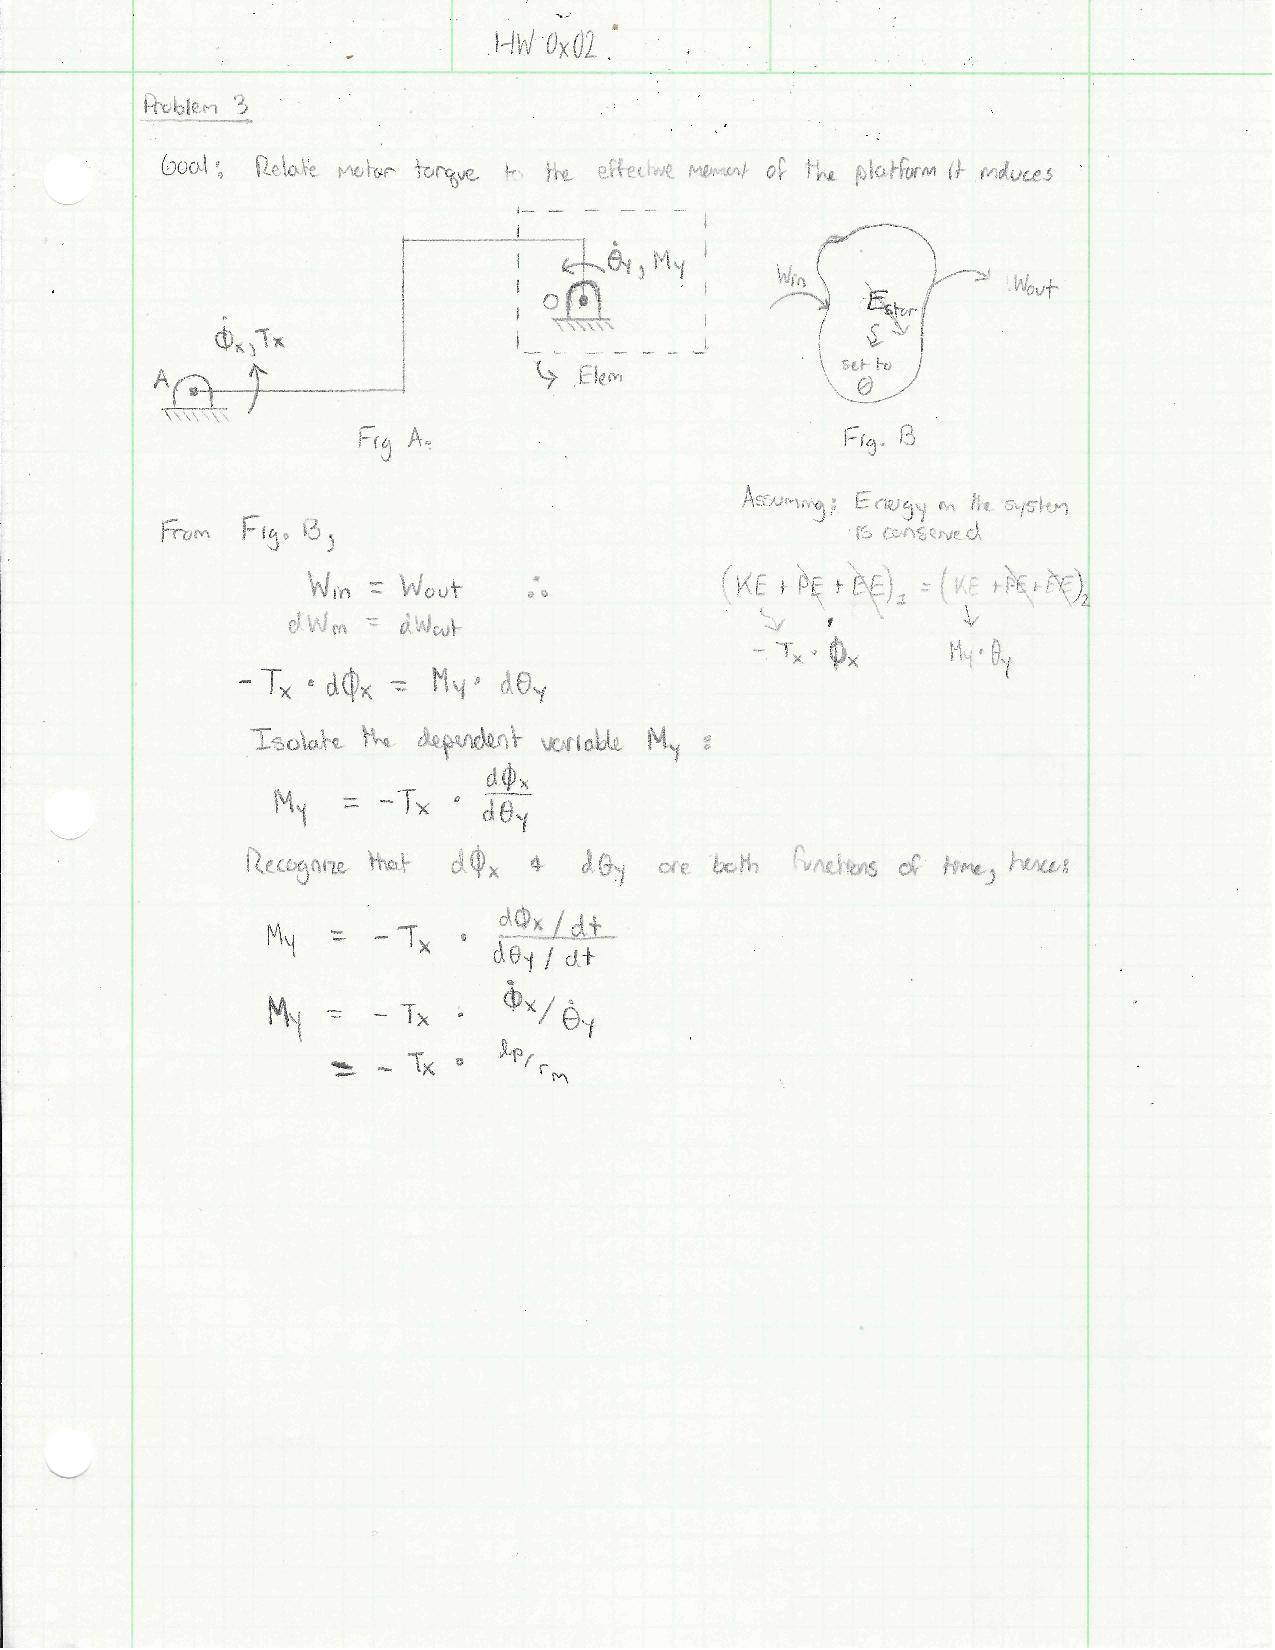 HW 0x02
Problem 3
Goal: Relate motor torque to the effective moment of the platform it induces
θ̇y, My
O
Φ̇x, Tx
A
↳ Elem
Fig A.
Win
Wout
Estor
set to
0
Fig. B
Assuming: Energy in the system
is conserved
From Fig. B,
Win = Wout ∴
dWin = dWout
(KE + PE + EE)1 = (KE + PE + EE)2
- Tx · Φx My · θy
- Tx · dΦx = My · dθy
Isolate the dependent variable My :
My = - Tx · dΦx / dθy
Recognize that dΦx & dθy are both functions of time, hence:
My = - Tx · dΦx / dt
dθy / dt
My = - Tx · Φ̇x / θ̇y
= - Tx · lp / rm